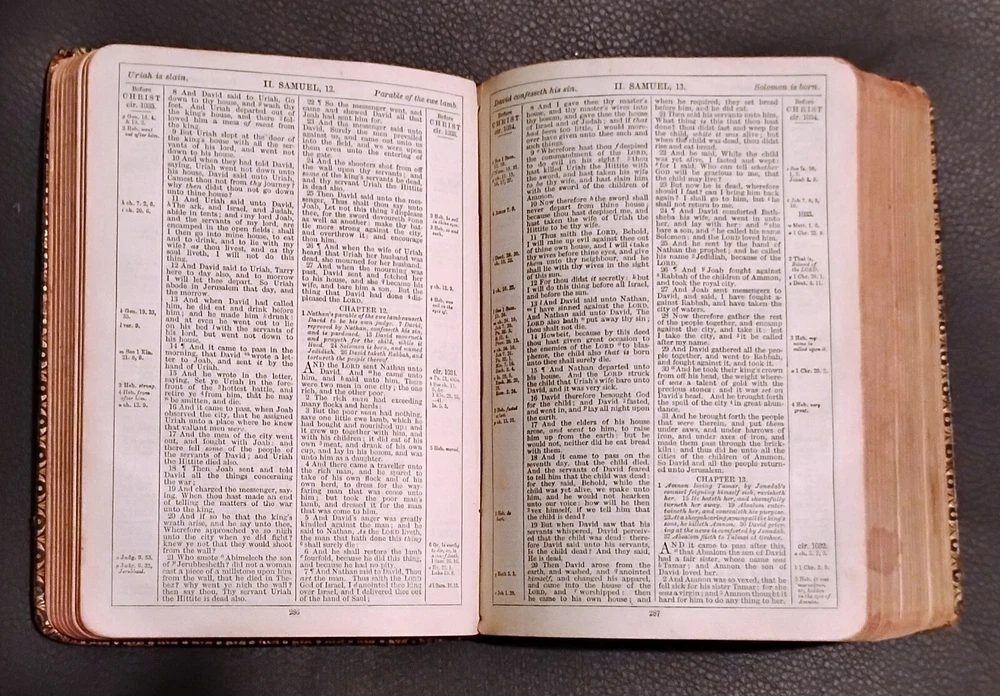 Uriah is slain.
II. SAMUEL, 12.
Parable of the ewe lamb.
Before
CHRIST
cir. 1035.
8 And David said to Uriah, Go
down to thy house, and wash thy
feet. And Uriah departed out of
the king's house, and there fol-
lowed him a mess of meat from
the king.
9 But Uriah slept at the door of
the king's house with all the ser-
vants of his lord, and went not
down to his house.
10 And when they had told David,
saying, Uriah went not down unto
his house, David said unto Uriah,
Camest thou not from thy journey?
why then didst thou not go down
unto thine house?
11 And Uriah said unto David,
The ark, and Israel, and Judah,
abide in tents; and my lord Joab,
and the servants of my lord, are
encamped in the open fields; shall
I then go into mine house, to eat
and to drink, and to lie with my
wife? as thou livest, and as thy
soul liveth, I will not do this
thing.
12 And David said to Uriah, Tarry
here to day also, and to morrow
I will let thee depart. So Uriah
abode in Jerusalem that day, and
the morrow.
13 And when David had called
him, he did eat and drink before
him; and he made him drunk:
and at even he went out to lie
on his bed with the servants of
his lord, but went not down to
his house.
14 ¶ And it came to pass in the
morning, that David wrote a let-
ter to Joab, and sent it by the
hand of Uriah.
15 And he wrote in the letter,
saying, Set ye Uriah in the fore-
front of the hottest battle, and
retire ye from him, that he may
be smitten, and die.
16 And it came to pass, when Joab
observed the city, that he assigned
Uriah unto a place where he knew
that valiant men were.
17 And the men of the city went
out, and fought with Joab: and
there fell some of the people of
the servants of David; and Uriah
the Hittite died also.
18 ¶ Then Joab sent and told
David all the things concerning
the war;
19 And charged the messenger, say-
ing, When thou hast made an end
of telling the matters of the war
unto the king,
20 And if so be that the king's
wrath arise, and he say unto thee,
Wherefore approached ye so nigh
unto the city when ye did fight?
knew ye not that they would shoot
from the wall?
21 Who smote Abimelech the son
of Jerubbesheth? did not a woman
cast a piece of a millstone upon him
from the wall, that he died in The-
bez? why went ye nigh the wall?
then say thou, Thy servant Uriah
the Hittite is dead also.
22 ¶ So the messenger went, and
came and shewed David all that
Joab had sent him for.
23 And the messenger said unto
David, Surely the men prevailed
against us, and came out unto us
into the field, and we were upon
them even unto the entering of
the gate.
24 And the shooters shot from off
the wall upon thy servants; and
some of the king's servants be dead,
and thy servant Uriah the Hittite
is dead also.
25 Then David said unto the mes-
senger, Thus shalt thou say unto
Joab, Let not this thing displease
thee, for the sword devoureth one
as well as another: make thy bat-
tle more strong against the city,
and overthrow it: and encourage
thou him.
26 ¶ And when the wife of Uriah
heard that Uriah her husband was
dead, she mourned for her husband.
27 And when the mourning was
past, David sent and fetched her
to his house, and she became his
wife, and bare him a son. But the
thing that David had done dis-
pleased the LORD.
CHAPTER 12.
1 Nathan's parable of the ewe lamb causeth
David to be his own judge. 7 David,
reproved by Nathan, confesseth his sin,
and is pardoned. 15 David mourneth
and prayeth for the child, while it
lived. 24 Solomon is born, and named
Jedidiah. 26 David taketh Rabbah, and
tortureth the people thereof.
AND the LORD sent Nathan unto
David. And he came unto
him, and said unto him, There
were two men in one city; the one
rich, and the other poor.
2 The rich man had exceeding
many flocks and herds:
3 But the poor man had nothing,
save one little ewe lamb, which he
had bought and nourished up: and
it grew up together with him, and
with his children; it did eat of his
own meat, and drank of his own
cup, and lay in his bosom, and was
unto him as a daughter.
4 And there came a traveller unto
the rich man, and he spared to
take of his own flock and of his
own herd, to dress for the way-
faring man that was come unto
him; but took the poor man's
lamb, and dressed it for the man
that was come to him.
5 And David's anger was greatly
kindled against the man; and he
said to Nathan, As the LORD liveth,
the man that hath done this thing
shall surely die:
6 And he shall restore the lamb
fourfold, because he did this thing,
and because he had no pity.
7 ¶ And Nathan said to David, Thou
art the man. Thus saith the LORD
God of Israel, I anointed thee king
over Israel, and I delivered thee out
of the hand of Saul;
Before
CHRIST
cir. 1034.
286
David confesseth his sin.
II. SAMUEL, 13.
Solomon is born.
Before
CHRIST
cir. 1034.
8 And I gave thee thy master's
house, and thy master's wives into
thy bosom, and gave thee the house
of Israel and of Judah; and if that
had been too little, I would more-
over have given unto thee such and
such things.
9 Wherefore hast thou despised
the commandment of the LORD,
to do evil in his sight? thou
hast killed Uriah the Hittite with
the sword, and hast taken his wife
to be thy wife, and hast slain him
with the sword of the children of
Ammon.
10 Now therefore the sword shall
never depart from thine house;
because thou hast despised me, and
hast taken the wife of Uriah the
Hittite to be thy wife.
11 Thus saith the LORD, Behold,
I will raise up evil against thee out
of thine own house, and I will take
thy wives before thine eyes, and give
them unto thy neighbour, and he
shall lie with thy wives in the sight
of this sun.
12 For thou didst it secretly: but
I will do this thing before all Israel,
and before the sun.
13 And David said unto Nathan,
I have sinned against the LORD.
And Nathan said unto David, The
LORD also hath put away thy sin;
thou shalt not die.
14 Howbeit, because by this deed
thou hast given great occasion to
the enemies of the LORD to blas-
pheme, the child also that is born
unto thee shall surely die.
15 ¶ And Nathan departed unto
his house. And the LORD struck
the child that Uriah's wife bare unto
David, and it was very sick.
16 David therefore besought God
for the child; and David fasted,
and went in, and lay all night upon
the earth.
17 And the elders of his house
arose, and went to him, to raise
him up from the earth: but he
would not, neither did he eat bread
with them.
18 And it came to pass on the
seventh day, that the child died.
And the servants of David feared
to tell him that the child was dead:
for they said, Behold, while the
child was yet alive, we spake unto
him, and he would not hearken
unto our voice: how will he then
vex himself, if we tell him that
the child is dead?
19 But when David saw that his
servants whispered, David perceiv-
ed that the child was dead: there-
fore David said unto his servants,
Is the child dead? And they said,
He is dead.
20 Then David arose from the
earth, and washed, and anointed
himself, and changed his apparel,
and came into the house of the
LORD, and worshipped: then
he came to his own house; and
when he required, they set bread
before him, and he did eat.
21 Then said his servants unto him,
What thing is this that thou hast
done? thou didst fast and weep for
the child, while it was alive; but
when the child was dead, thou didst
rise and eat bread.
22 And he said, While the child
was yet alive, I fasted and wept:
for I said, Who can tell whether
GOD will be gracious to me, that
the child may live?
23 But now he is dead, wherefore
should I fast? can I bring him back
again? I shall go to him, but he
shall not return to me.
24 ¶ And David comforted Bath-
sheba his wife, and went in unto
her, and lay with her: and she
bare a son, and he called his name
Solomon: and the LORD loved him.
25 And he sent by the hand of
Nathan the prophet; and he called
his name Jedidiah, because of the
LORD.
26 ¶ And Joab fought against
Rabbah of the children of Ammon,
and took the royal city.
27 And Joab sent messengers to
David, and said, I have fought a-
gainst Rabbah, and have taken the
city of waters.
28 Now therefore gather the rest
of the people together, and encamp
against the city, and take it: lest
I take the city, and it be called
after my name.
29 And David gathered all the peo-
ple together, and went to Rabbah,
and fought against it, and took it.
30 And he took their king's crown
from off his head, the weight where-
of was a talent of gold with the
precious stones: and it was set on
David's head. And he brought forth
the spoil of the city in great abun-
dance.
31 And he brought forth the people
that were therein, and put them
under saws, and under harrows of
iron, and under axes of iron, and
made them pass through the brick-
kiln: and thus did he unto all the
cities of the children of Ammon.
So David and all the people return-
ed unto Jerusalem.
CHAPTER 13.
1 Amnon loving Tamar, by Jonadab's
counsel feigning himself sick, ravisheth
her. 15 He hateth her, and shamefully
turneth her away. 19 Absalom enter-
taineth her, and concealeth his purpose.
23 At a sheepshearing, among all the king's
sons, he killeth Amnon. 30 David griev-
ing at the news is comforted by Jonadab.
37 Absalom flieth to Talmai at Geshur.
AND it came to pass after this,
that Absalom the son of David
had a fair sister, whose name was
Tamar; and Amnon the son of
David loved her.
2 And Amnon was so vexed, that he
fell sick for his sister Tamar; for she
was a virgin; and Amnon thought it
hard for him to do any thing to her.
Before
CHRIST
cir. 1034.
1033.
cir. 1032.
287